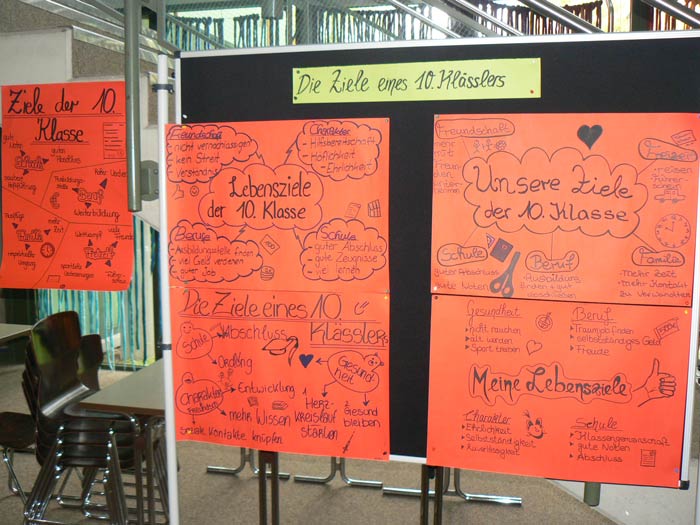 Die Ziele eines 10. Klässlers
Ziele der 10.
Klasse
gute
Noten
guter
Abschluss
Schule
Ausbildungs-
stelle
Beruf
Weiterbildung
Familie
Freizeit
viele
Freunde
Freundschaft
- nicht vernachlässigen
- kein Streit
- Verständnis
Charakter
- Hilfsbereitschaft
- Höflichkeit
- Ehrlichkeit
Lebensziele
der 10. Klasse
Berufe
- Ausbildungsstelle finden
- viel Geld verdienen
- guter Job
Schule
- guter Abschluss
- gute Zeugnisse
- viel lernen
Freundschaft
mehr
mit
Freunden
unter-
nehmen
Freizeit
Führer-
schein
Unsere Ziele
der 10. Klasse
Schule
guter Abschluss
gute Noten
Beruf
Ausbildung
finden + gut
abschließen
Familie
- mehr Zeit
- mehr Kontakt
zu Verwandten
Die Ziele eines 10.
Klässlers
Schule
Abschluss
Ordnung
Gesund-
heit
Charakter
Freundschaft
Entwicklung
mehr Wissen
soziale Kontakte knüpfen
1 Herz-
kreislauf
stärken
2 Gesund
bleiben
Gesundheit
nicht rauchen
alt werden
Sport treiben
Beruf
Traumjob finden
selbstständiges Geld
Freude
Meine Lebensziele
Charakter
Ehrlichkeit
Selbstständigkeit
Zuverlässigkeit
Schule
Klassengemeinschaft
gute Noten
Abschluss